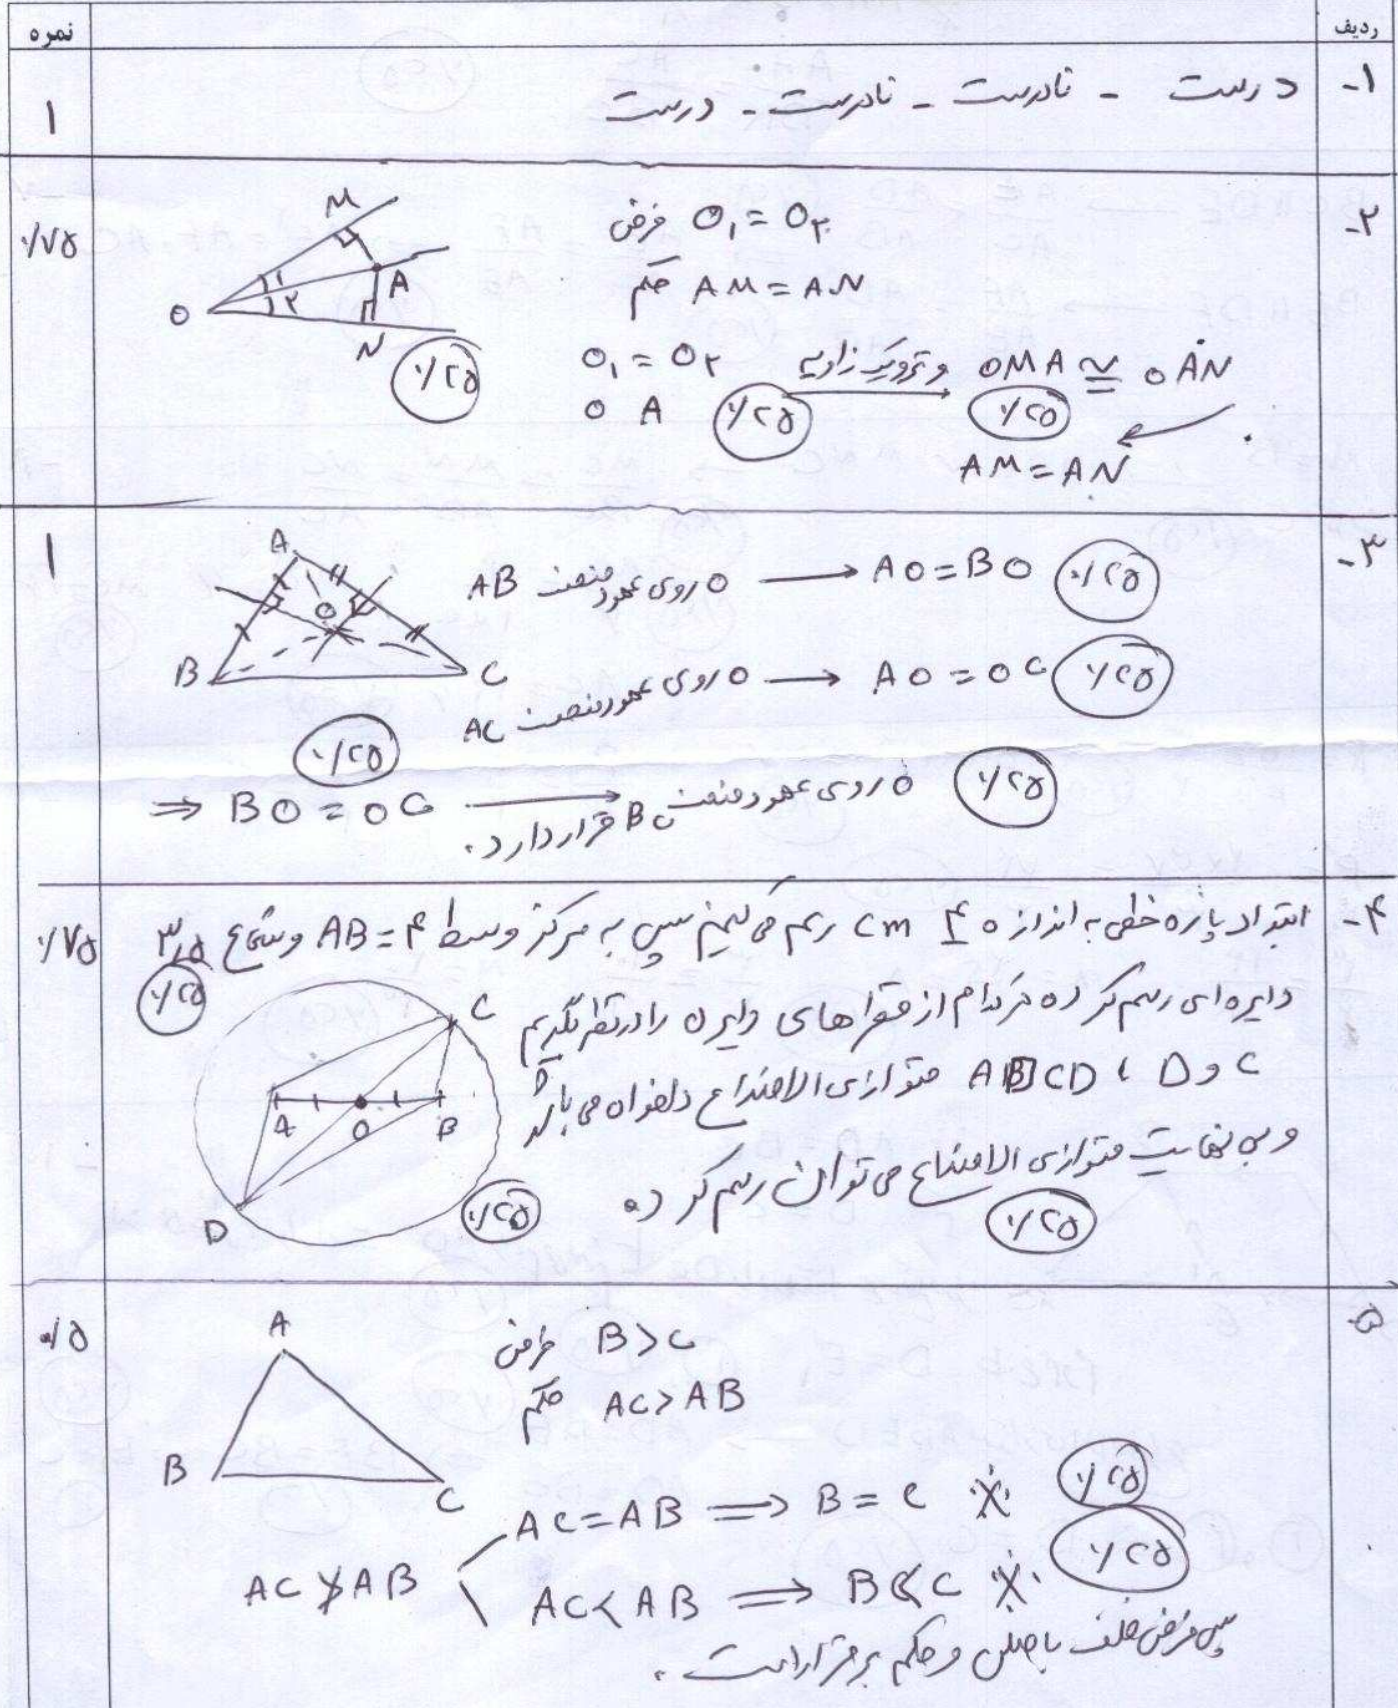 ردیف
نمره
۱- درست - نادرست - نادرست - درست
۱
۲-
۰/۷۵
فرض O₁ = O₂
حکم AM = AN
M
O ۱ ۲ A
N
۰/۲۵
O₁ = O₂ وتر و یک زاویه OMA ≅ OAN
O A ۰/۲۵ ۰/۲۵
AM = AN
۳-
۱
A
O
B C
O روی عمود منصف AB → AO = BO ۰/۲۵
O روی عمود منصف AC → AO = OC ۰/۲۵
۰/۲۵
⇒ BO = OC → O روی عمود منصف BC قرار دارد. ۰/۲۵
۴- ابتدا پاره خطی به اندازه ۴ cm رسم می‌کنیم سپس به مرکز وسط AB = ۴ و شعاع ۳٫۵
۰/۷۵
۰/۲۵
دایره‌ای رسم کرده هر کدام از قطرهای دایره را در نظر بگیریم
C و D ، ABCD متوازی الاضلاع دلخواه می باشد
و بی نهایت متوازی الاضلاع می توان رسم کرد.
۰/۲۵
C
A O B
D
۰/۲۵
۵-
۰/۵
A
B C
فرض B > C
حکم AC > AB
AC ≯ AB
AC = AB ⇒ B = C ※ ۰/۲۵
AC < AB ⇒ B < C ※ ۰/۲۵
پس فرض خلف باطل و حکم برقرار است.